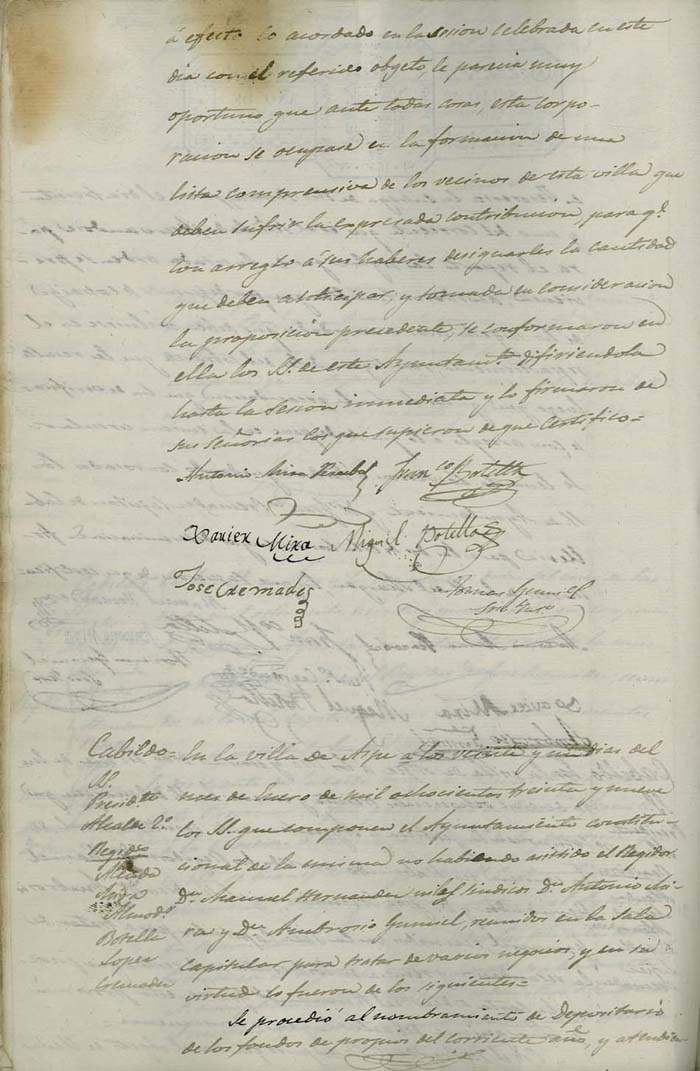 á efecto lo acordado en la sesion celebrada en este
dia con el referido objeto, le parecia muy
oportuno que ante todas cosas, esta corpo-
racion se ocupase en la formacion de una
lista comprensiva de los vecinos de esta villa que
deben sufrir la expresada contribucion para q.e
con arreglo á sus haberes designarles la cantidad
que deben anticipar, y tomada en consideracion
la proposicion precedente, se conformaron en
ella los SS. de este Ayuntam.to difiriendola
hasta la sesion inmediata y lo firmaron de
sus Señorias los que supieron de que certifico=
Antonio Mira Fran.co Botella
Xavier Mira Miguel Botella
Jose Cremades
Tomas Gumiel
Srio
Cabildo=
SS.
Presid.te
Alcalde 2.o
Regid.s
Mira
Almod.r
Botella
Lopez
Cremades
En la villa de Aspe a los veinte y un dias del
mes de Enero de mil ochocientos treinta y nueve
los SS. que componen el Ayuntamiento constitu-
cional de la misma no habiendo asistido el Regidor
D.n Manuel Hernandez ni los sindicos D.n Antonio Mi-
ra y D.n Ambrosio Gumiel, reunidos en la sala
capitular para tratar de varios negocios, y en su
virtud lo fueron de los siguientes=
Se procedió al nombramiento de Depositario
de los fondos de propios del corriente año, y atendien